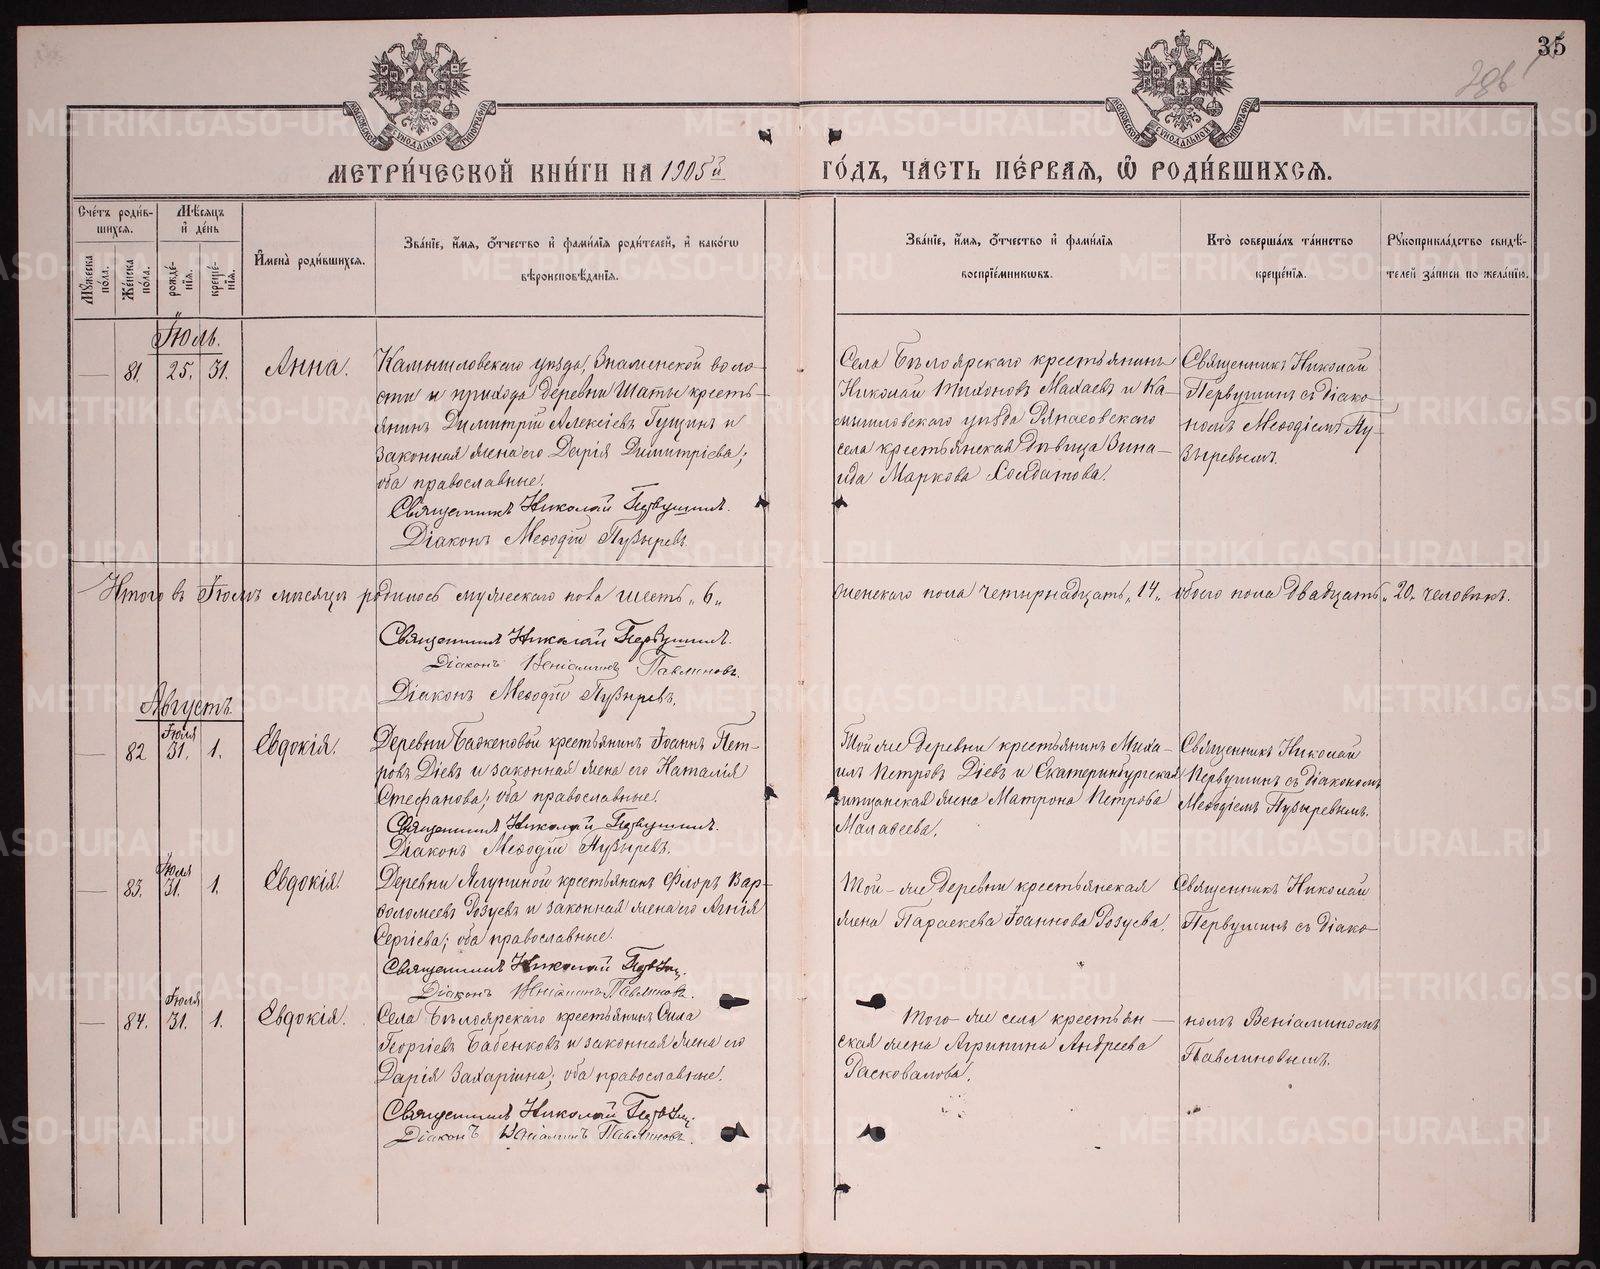 35
МЕТРИ́ЧЕСКОЙ КНИ́ГИ НА 1905й ГО́ДЪ, ЧА́СТЬ ПЕ́РВАѦ, Ѡ҆ РОДИ́ВШИХСѦ.
Сче́тъ роди́в-
шихся.
Мѣ́сяцъ
и҆ де́нь
Мꙋ́жеска по́ла.
Же́нска по́ла.
рожде́-нїѧ.
креще́-нїѧ.
И҆мена̀ роди́вшихся.
Зва́нїе, и҆́мя, ѻ҆́тчество и҆ фами́лїя роди́телей, и҆ како́гѡ
вѣроисповѣ́данїя.
Зва́нїе, и҆́мя, ѻ҆́тчество и҆ фами́лїя
воспрїе́мникѡвъ.
Кто̀ соверша́лъ та́инство
креще́нїя.
Рꙋкоприкла́дство свидѣ́-
телей за́писи по жела́нїю.
Іюль.
81. 25. 31. Анна.
Камышловскаго уѣзда, Знаменской воло-
сти и прихода деревни Шаты кресть-
янинъ Димитрій Алексіевъ Гущинъ и
законная жена его Дарія Димитріева;
оба православные.
Священникъ Николай Первушинъ.
Діаконъ Меѳодій Пузыревъ.
Села Бѣлоярскаго крестьянинъ
Николай Тихоновъ Махаевъ и Ка-
мышловскаго уѣзда
села крестьянская дѣвица Зина-
ида Маркова Солдатова.
Священникъ Николай
Первушинъ съ діако-
номъ Меѳодіемъ Пу-
зыревымъ.
Итого въ Іюлѣ мѣсяцѣ родилось мужескаго пола шесть „6„ женскаго пола четырнадцать „14„ обоего пола двадцать „20„ человѣкъ.
Священникъ Николай Первушинъ.
Діаконъ Веніаминъ Павлиновъ.
Діаконъ Меѳодій Пузыревъ.
Августъ.
82 Іюля 31. 1. Евдокія.
Деревни Баженовой крестьянинъ Іоаннъ Пет-
ровъ Діевъ и законная жена его Наталія
Стефанова; оба православные.
Священникъ Николай Первушинъ.
Діаконъ Меѳодій Пузыревъ.
Той же деревни крестьянинъ Миха-
илъ Петровъ Діевъ и Екатеринбургская
мѣщанская жена Матрона Петрова
Малафеева.
Священникъ Николай
Первушинъ съ діакономъ
Меѳодіемъ Пузыревымъ.
83. Іюля 31. 1. Евдокія.
Деревни Ялуниной крестьянинъ Флоръ Вар-
ѳоломеевъ Розуевъ и законная жена его Агнія
Сергіева; оба православные.
Священникъ Николай
Діаконъ Веніаминъ Павлиновъ.
Той-же деревни крестьянская
жена Параскева Іоаннова Розуева.
Священникъ Николай
Первушинъ съ діако-
84. Іюля 31. 1. Евдокія.
Села Бѣлоярскаго крестьянинъ Сила
Георгіевъ Бабенковъ и законная жена его
Дарія Захаріина; оба православные.
Священникъ Николай
Діаконъ Веніаминъ Павлиновъ.
Того-же села крестьян-
ская жена Агрипина Андреева
Расковалова.
номъ Веніаминомъ
Павлиновымъ.
METRIKI.GASO-URAL.RU